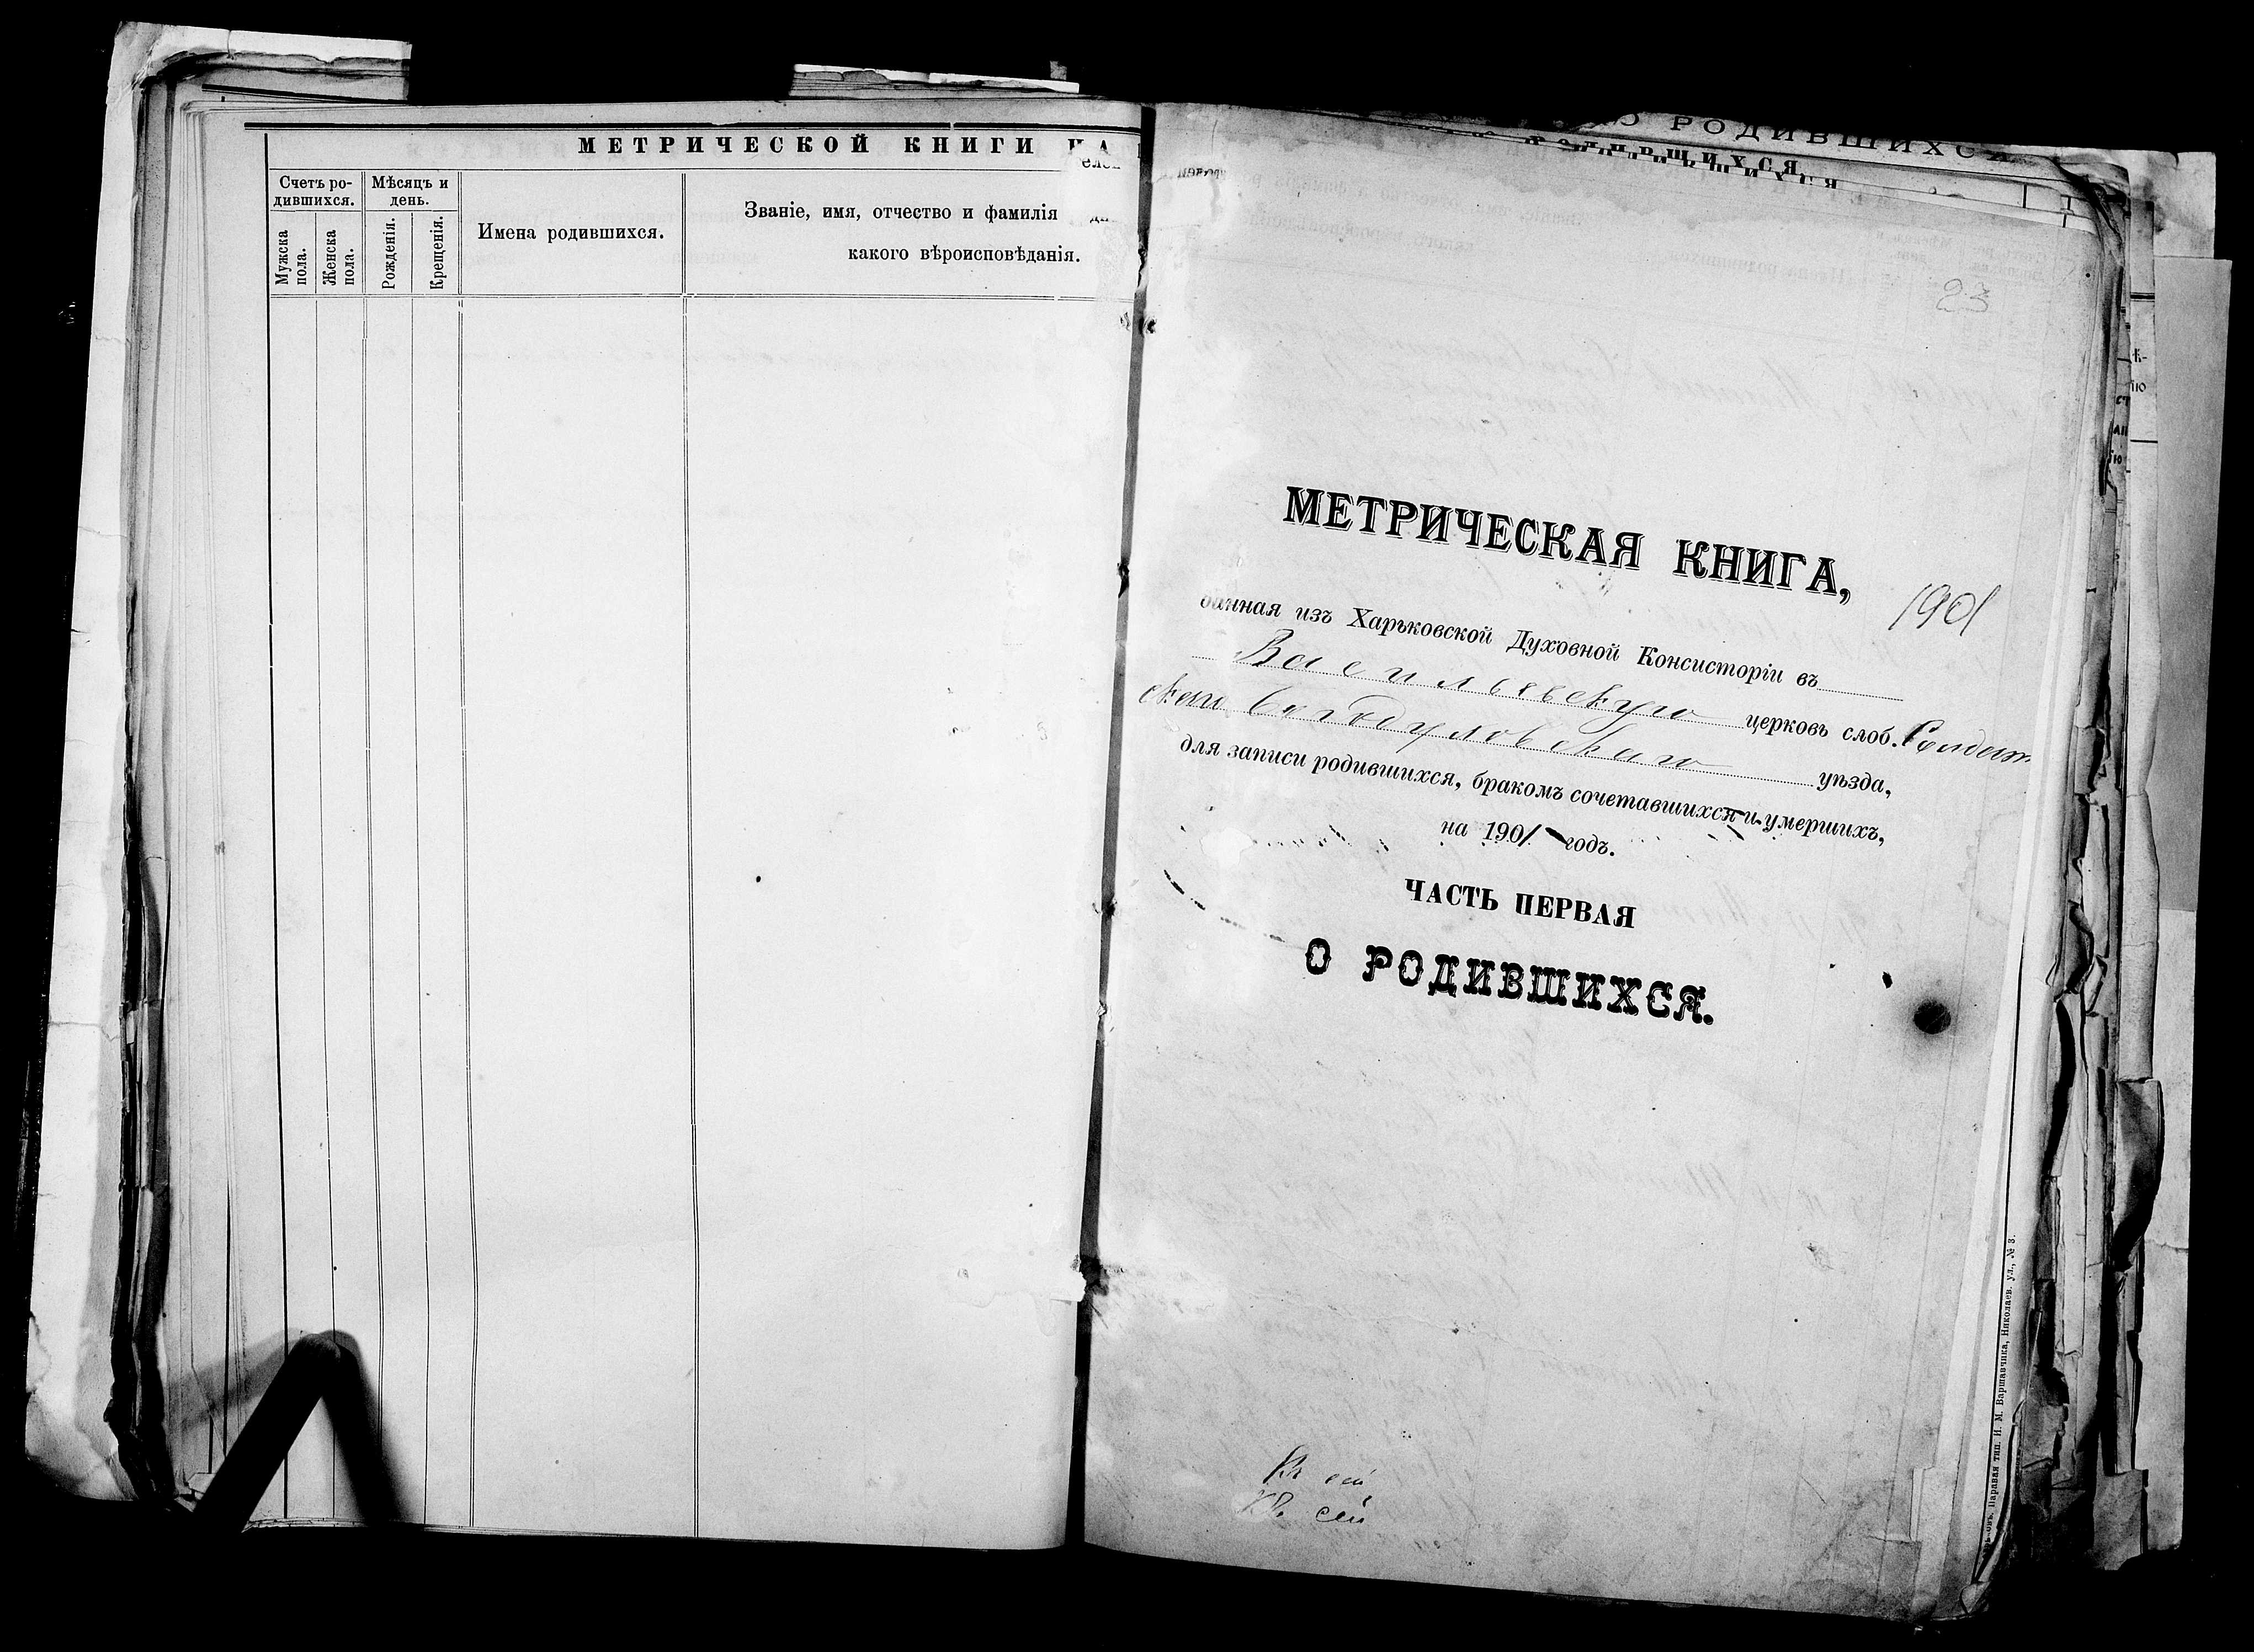 МЕТРИЧЕСКОЙ КНИГИ НА
Счетъ ро-
дившихся.
Мѣсяцъ и
день.
Мужска
пола.
Женска
пола.
Рожденія.
Крещенія.
Имена родившихся.
Званіе, имя, отчество и фамилія
какого вѣроисповѣданія.
О РОДИВШИХСЯ
23
МЕТРИЧЕСКАЯ КНИГА,
1901
данная изъ Харьковской Духовной Консисторіи въ
Васильевскую церковь слоб. Солдат
ской Богодуховскаго уѣзда,
для записи родившихся, бракомъ сочетавшихся и умершихъ,
на 1901 годъ.
ЧАСТЬ ПЕРВАЯ
О РОДИВШИХСЯ.
Къ сей
Къ сей
Паровая тип. И. М. Варшавчика, Николаев. ул., № 3.